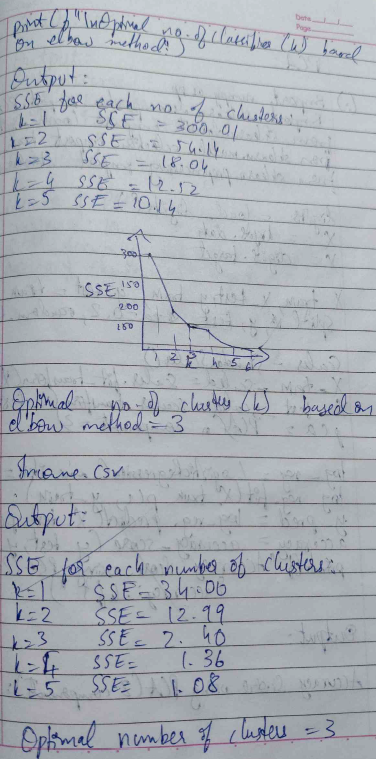 Date
Page
print(f"\nOptimal no. of classifiers (k) based
on elbow method")
Output:
SSE for each no. of clusters:
k=1 SSE = 300.01
k=2 SSE = 54.14
k=3 SSE = 18.04
k=4 SSE = 12.52
k=5 SSE = 10.14
300
SSE 150
200
250
1 2 3 4 5 6
k
Optimal no. of clusters (k) based on
elbow method = 3
Income.csv
Output:
SSE for each number of clusters:
k=1 SSE = 34.06
k=2 SSE = 12.99
k=3 SSE = 2.40
k=4 SSE = 1.36
k=5 SSE = 1.08
Optimal number of clusters = 3